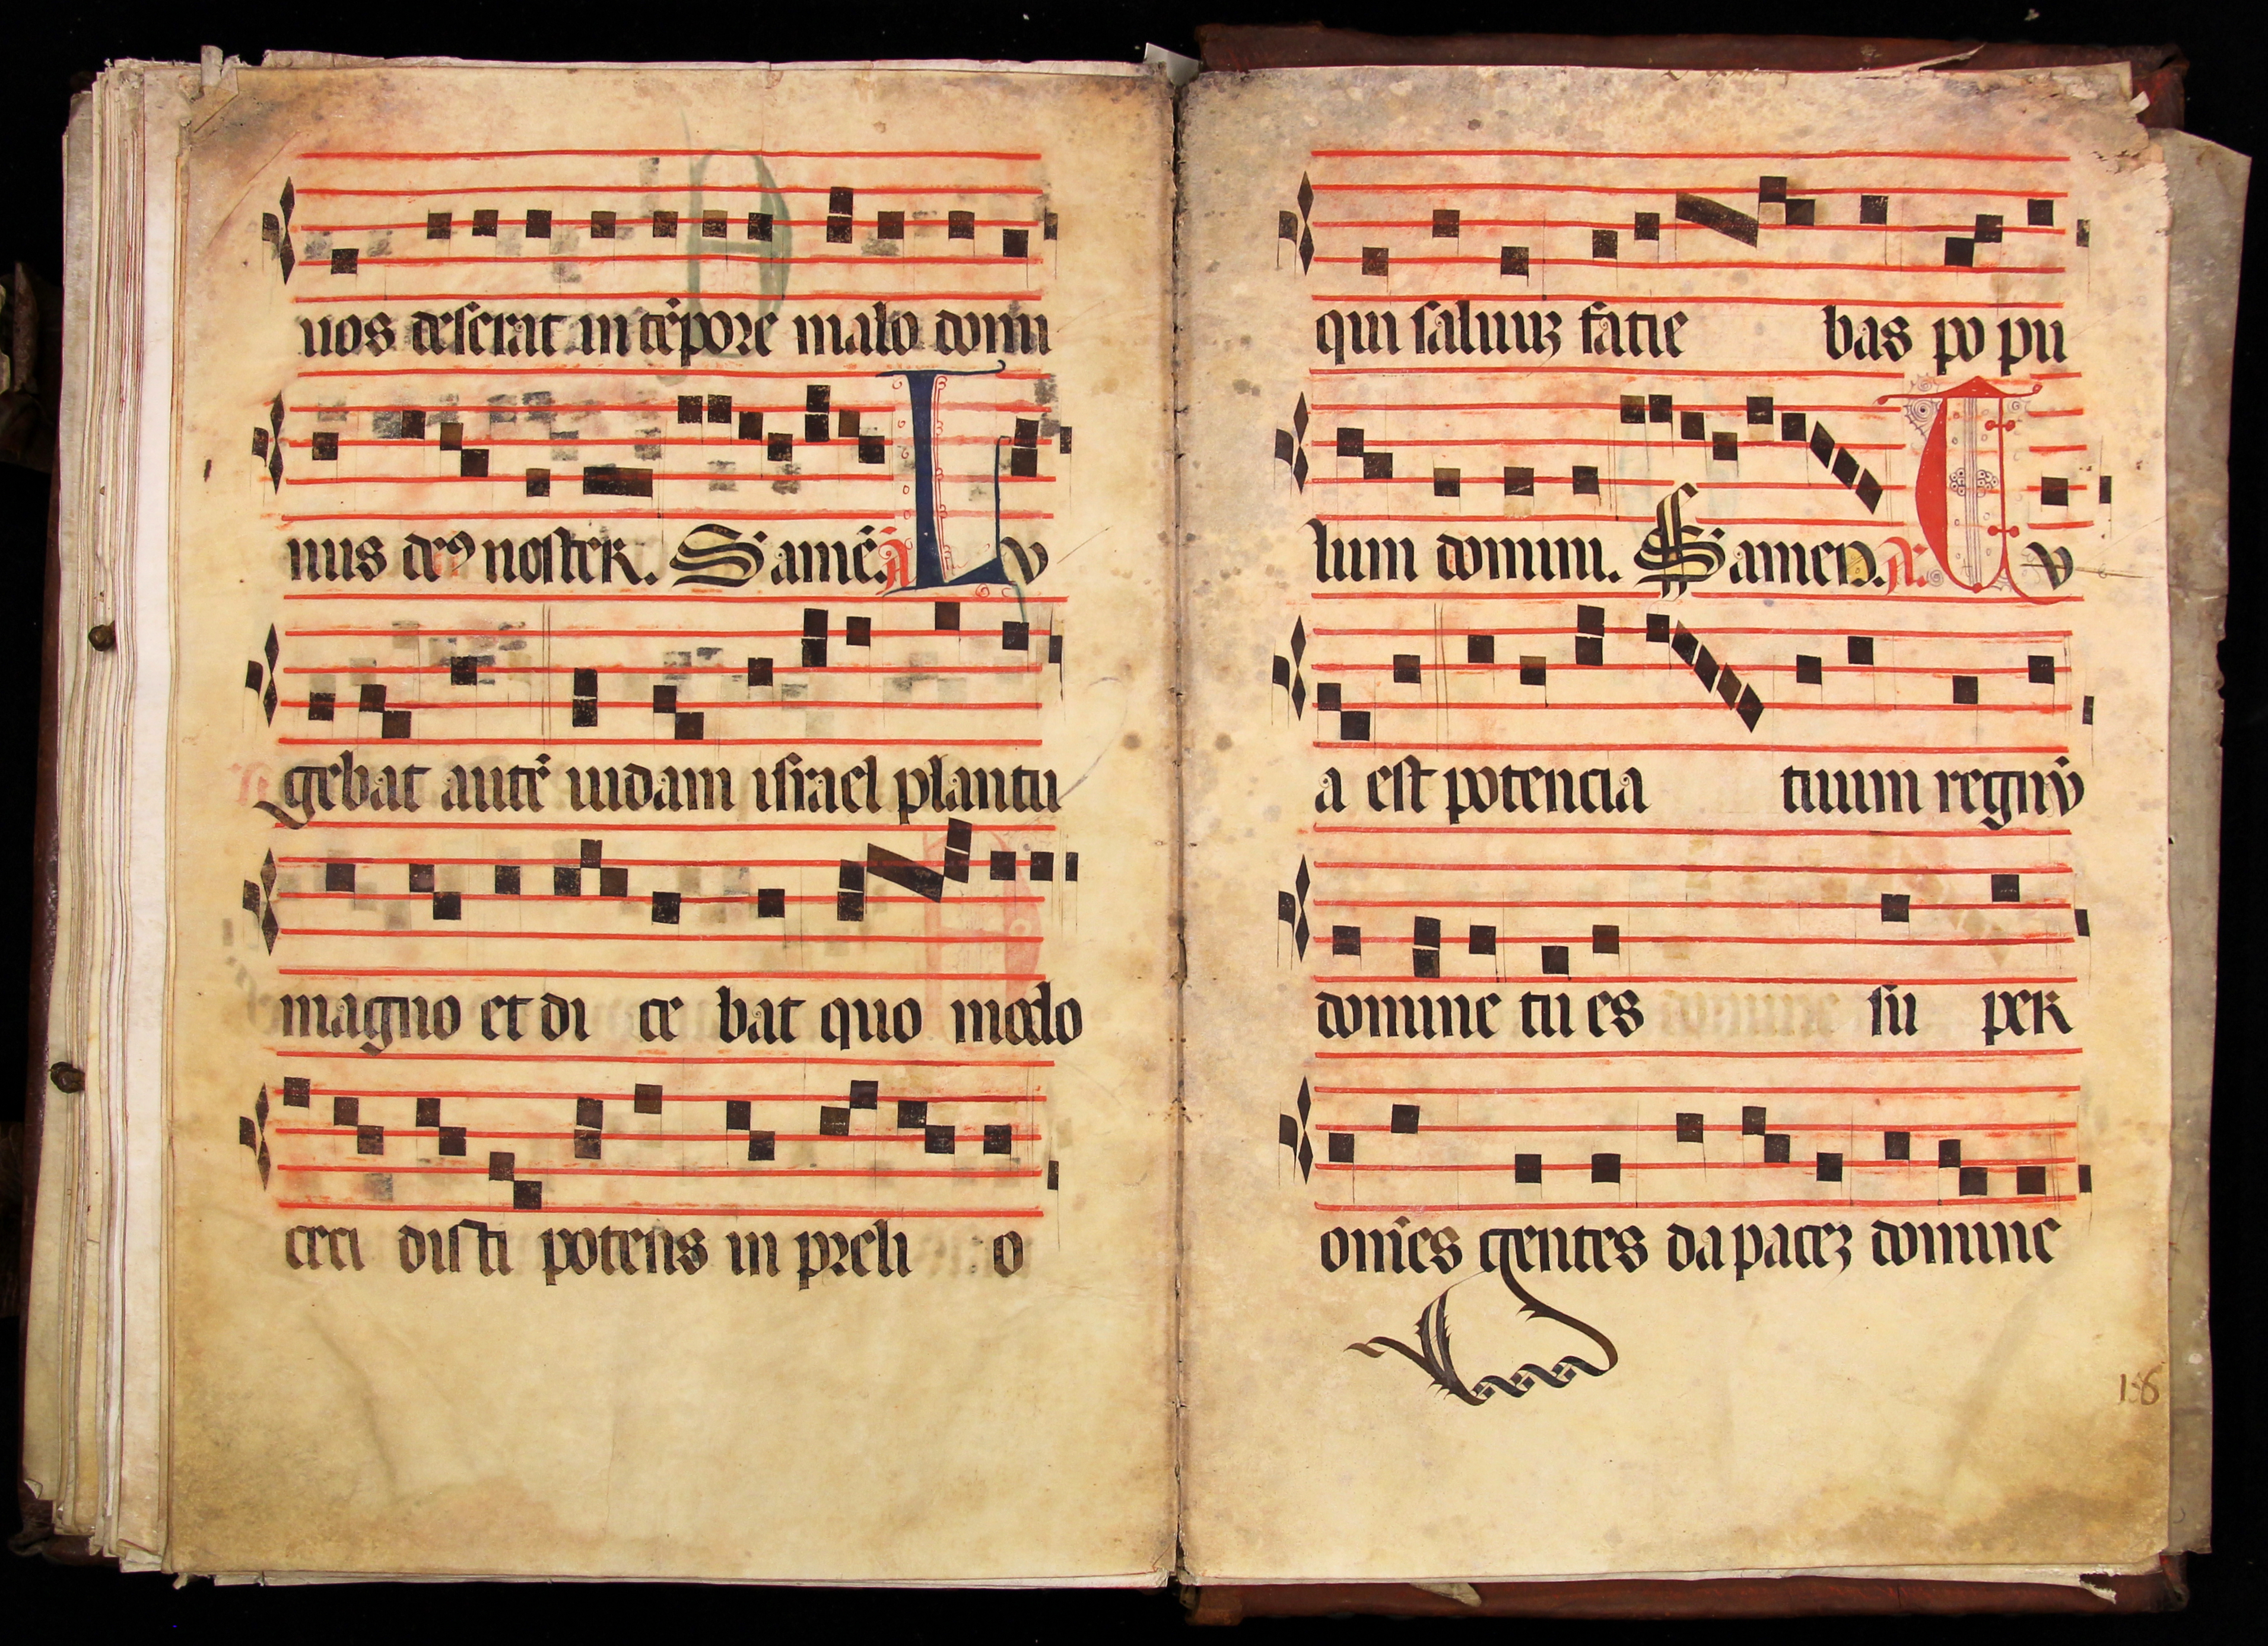 uos deserat in tēpore malo domi
nus deꝯ noster. S amē. A Lv
gebat autē iudam israel plantu
magno et di ce bat quo modo
ceci disti potens in preli o
qui saluuꝫ facie bas po pu
lum domini. S amen. A. Tv
a est potencia tuum regnū
domine tu es su per
om̄es gentes da paceꝫ domine
186